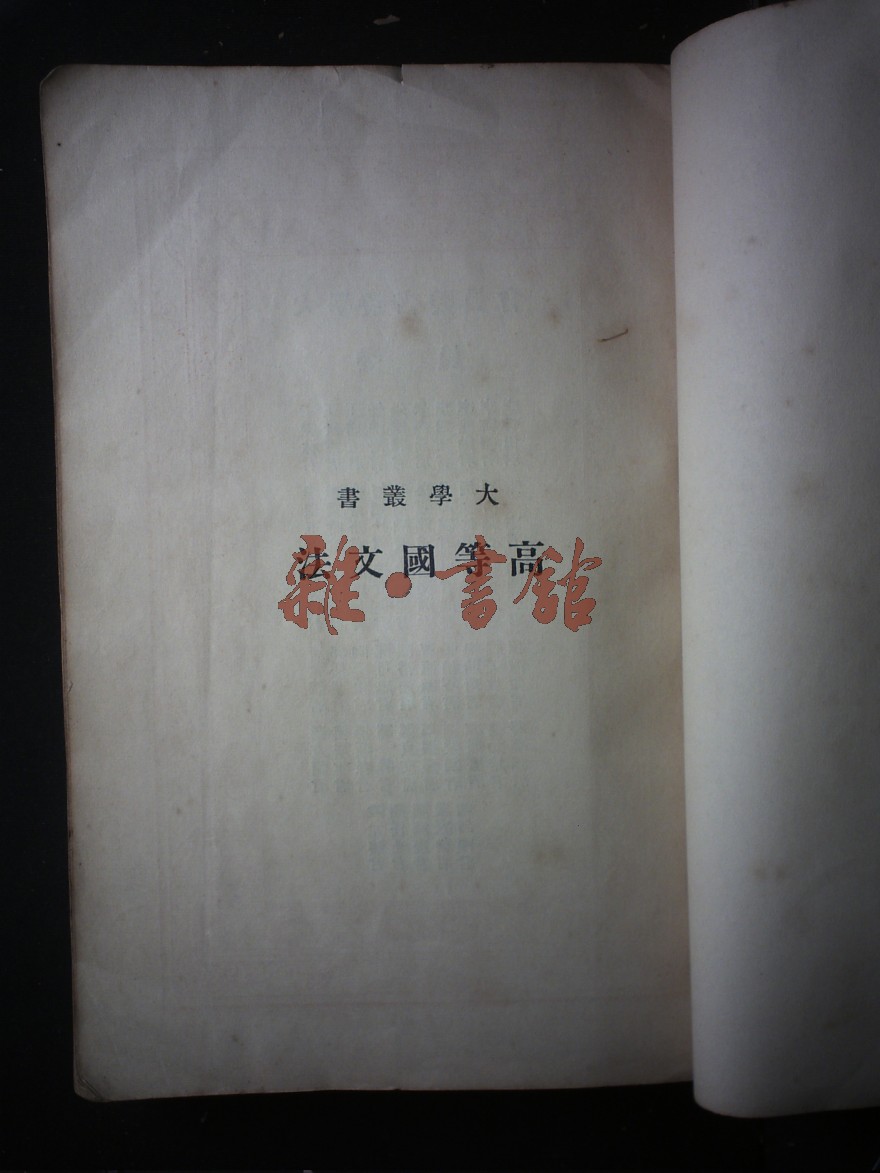 大學叢書
高等國文法
雜·書館